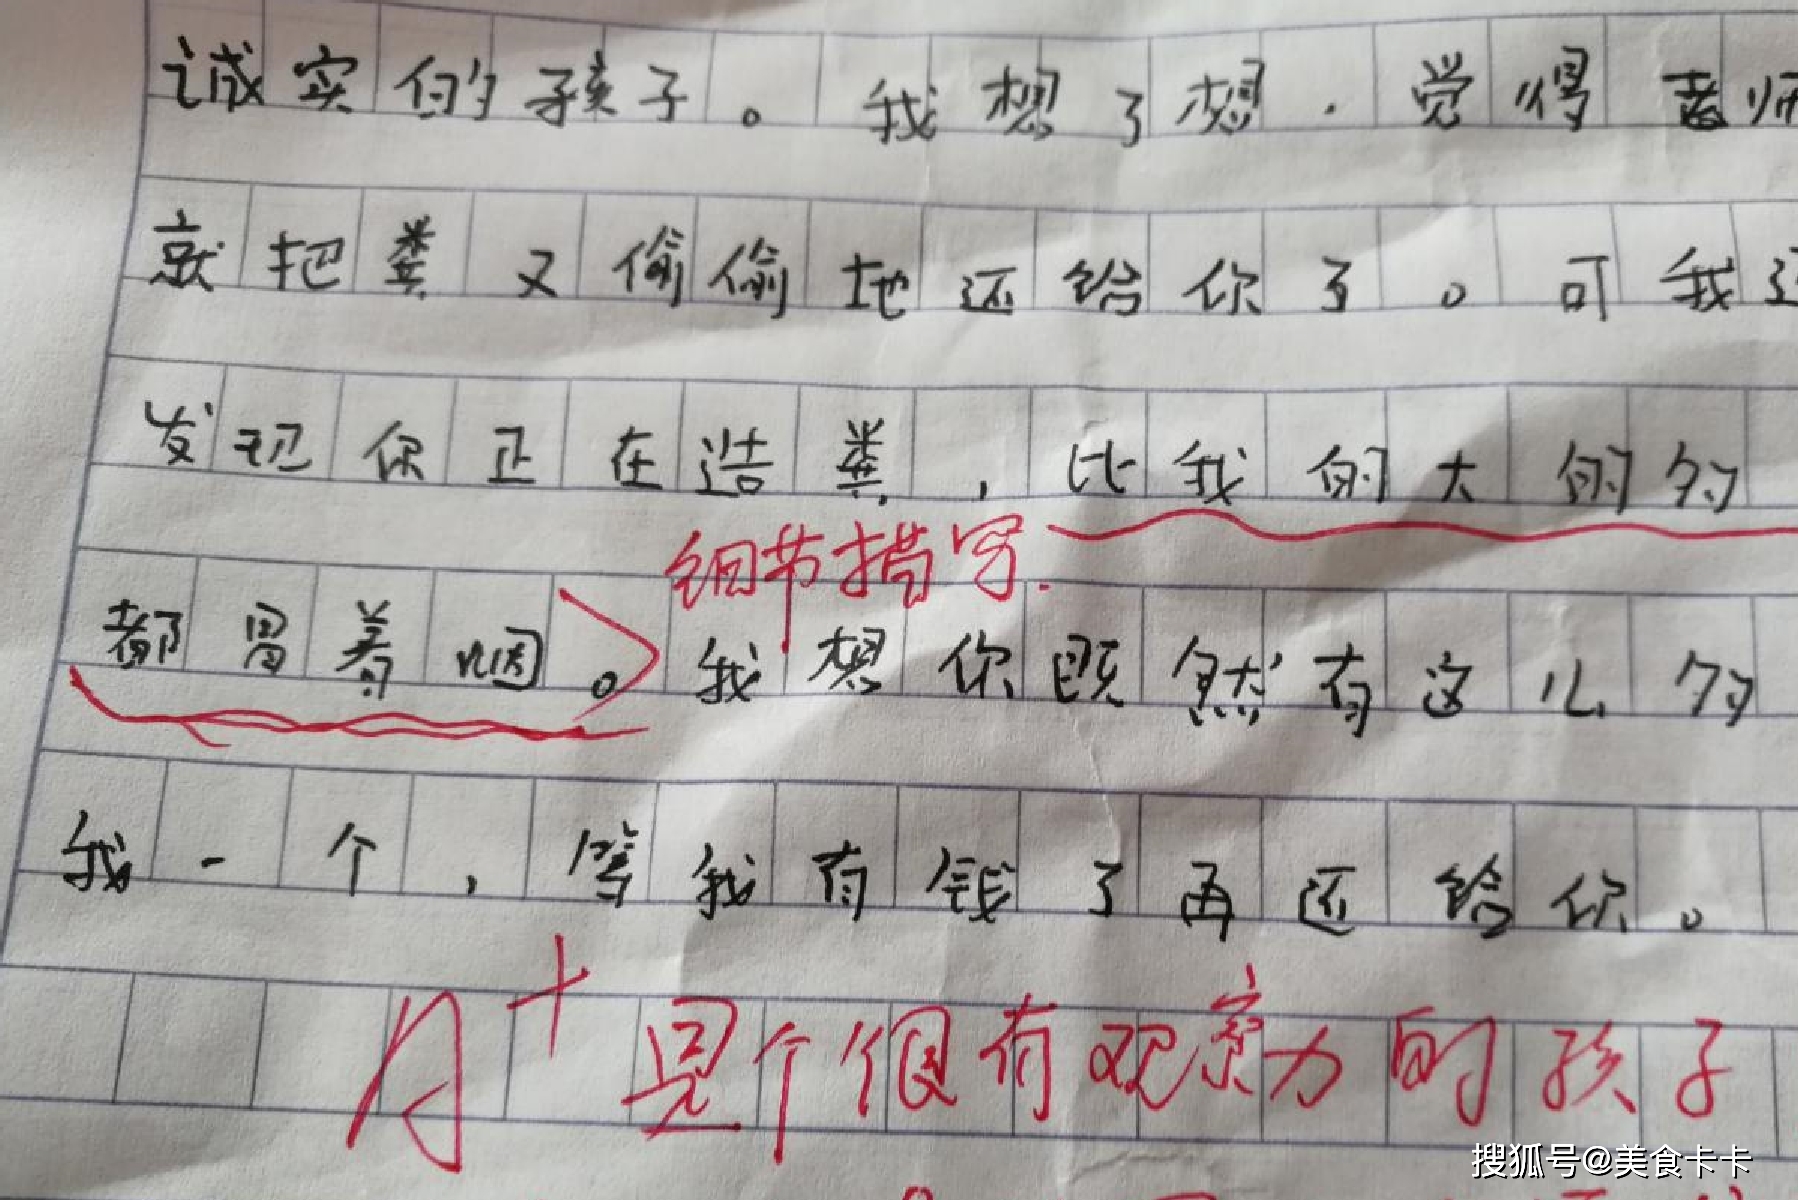 诚实的孩子。我想了想，觉得老师
就把粪又偷偷地还给你了。可我
发现你正在造粪，比我的大的多
细节描写.
都冒着烟。我想你既然有这么多
我一个，等我有钱了再还给你。
A+ 是个很有观察力的孩子
搜狐号@美食卡卡